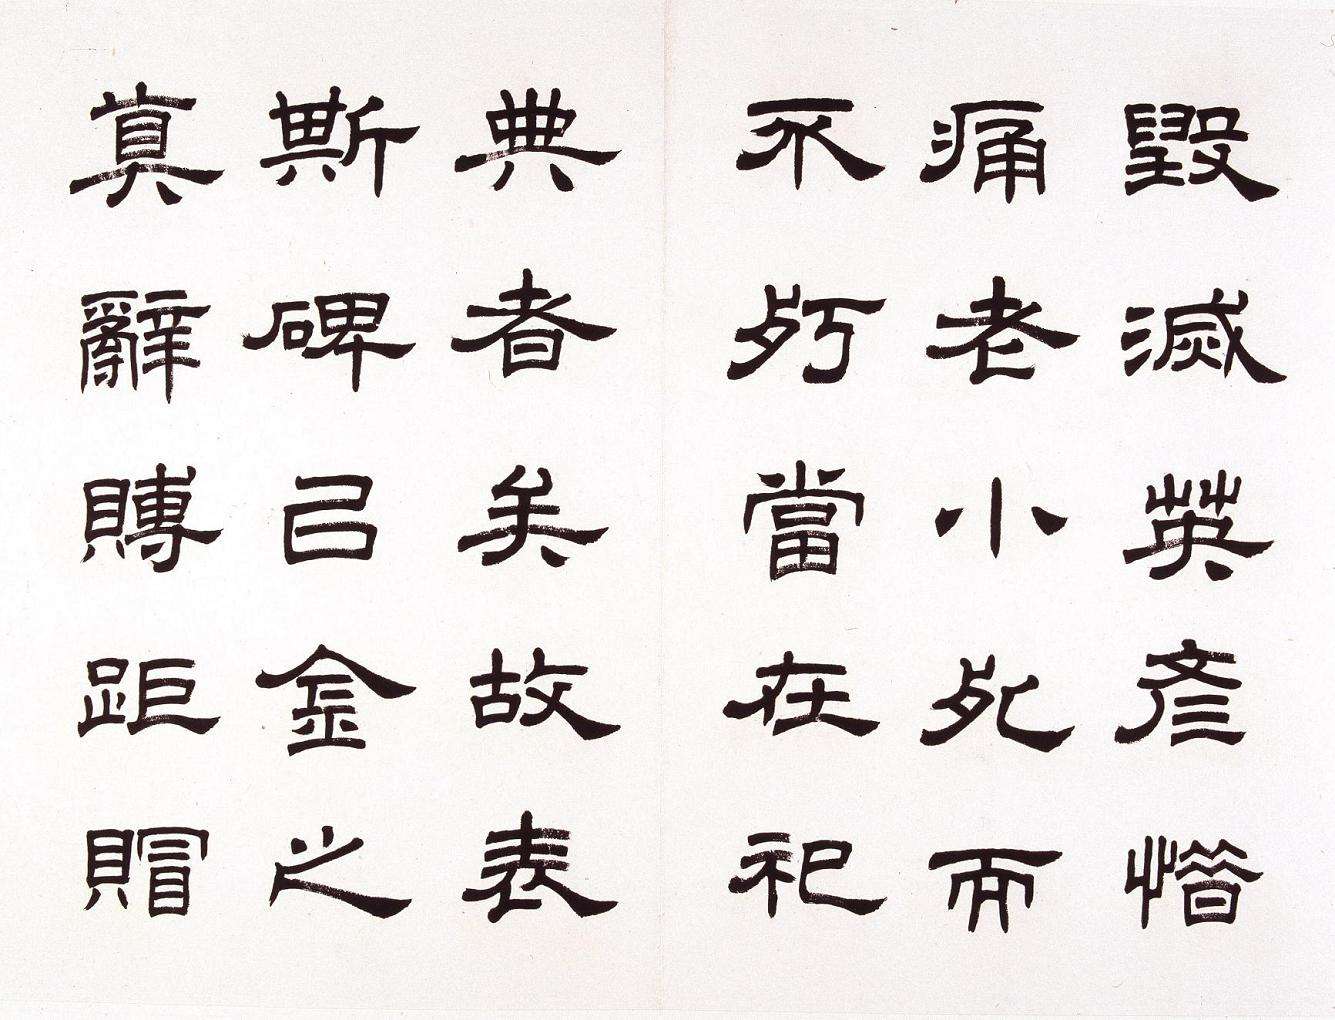 毀滅英彥惜
痛老小死而
不朽當在祀
典者矣故表
斯碑己金之
真辭賻距賵